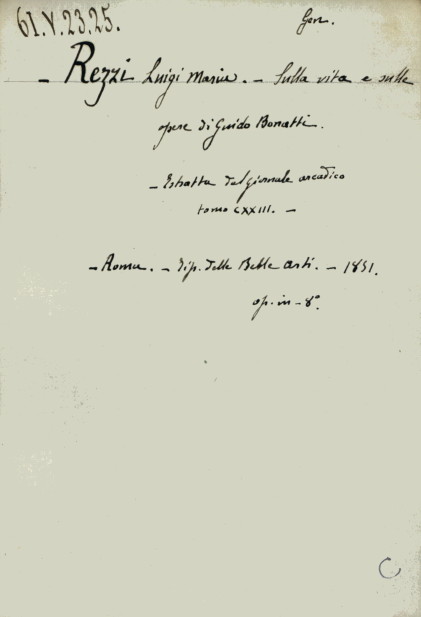 61.V.23.25.
Gen.
- Rezzi Luigi Maria. - Sulla vita e sulle
opere di Guido Bonatti.
- Estratta dal giornale arcadico
tomo CXXIII. -
- Roma. - Tip. delle Belle Arti. - 1851.
op. in - 8°.
C